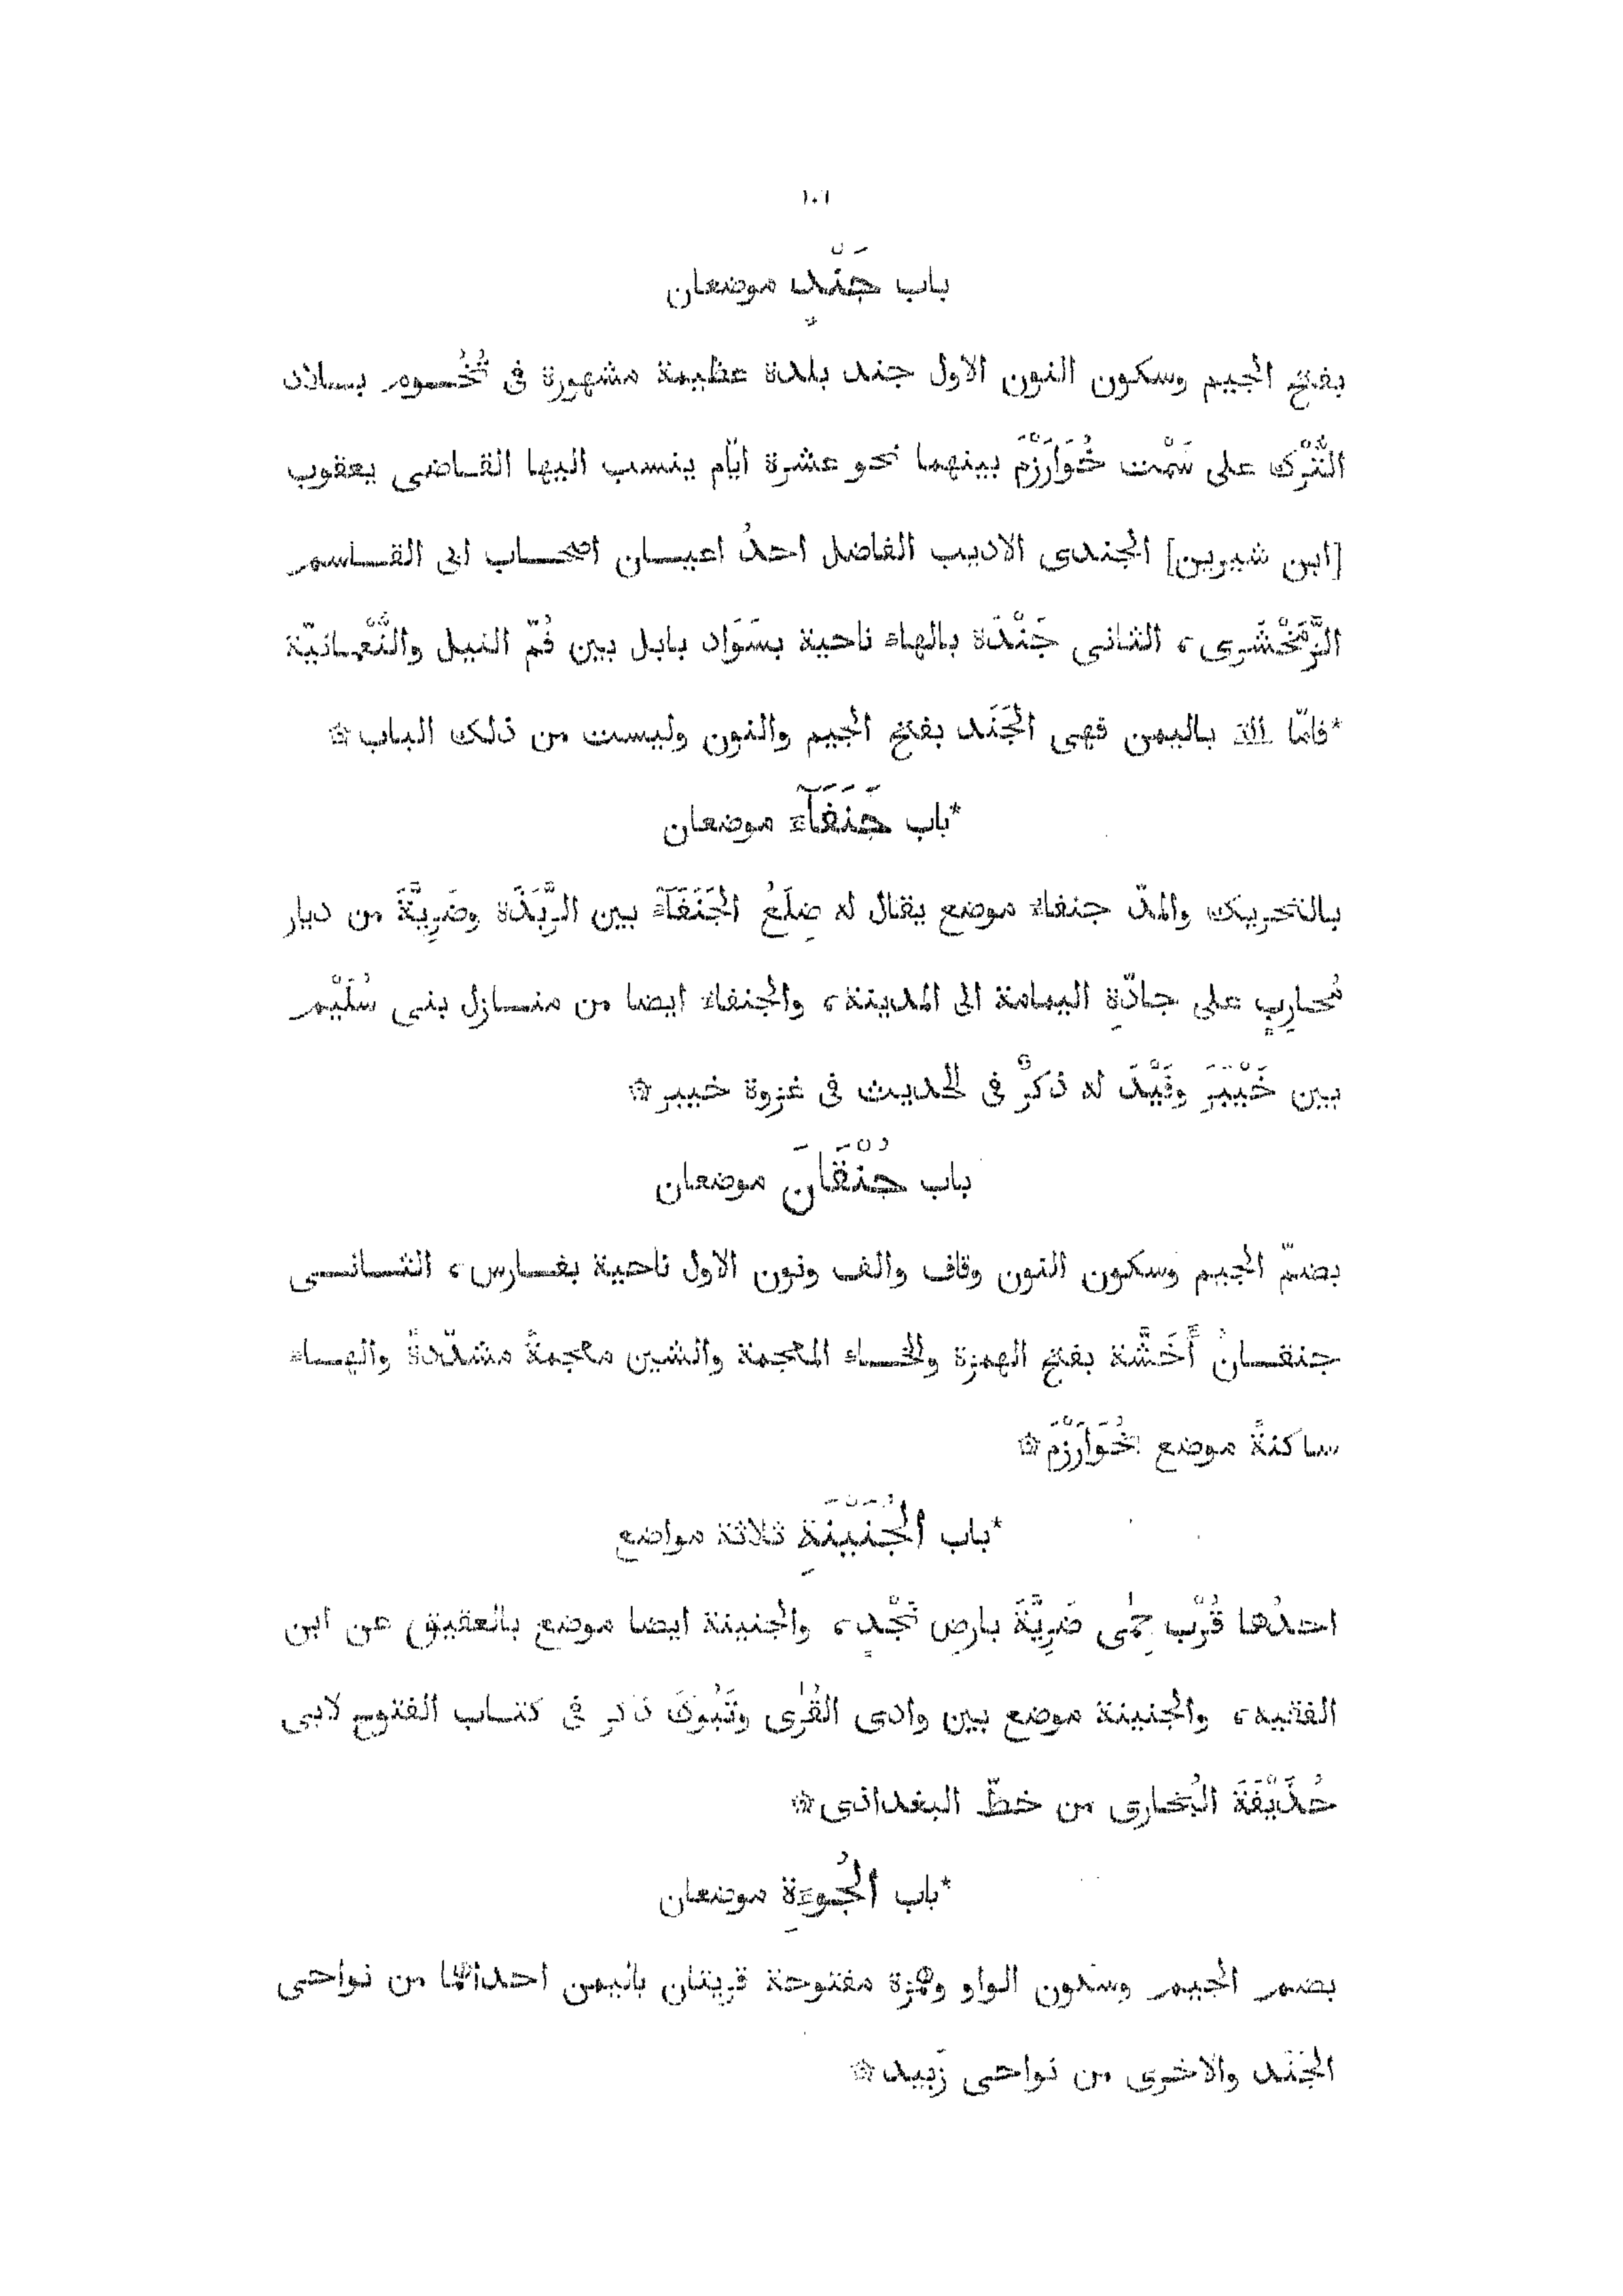 ١٠٦
باب جَنْدٍ موضعان
بفتح الجيم وسكون النون الاول جند بلدة عظيمة مشهورة فى تُخُـوم بـلاد
التُّرْك على سَمْت خُوَارَزْمَ بينهما نحو عشرة ايّام ينسب اليها القـاضى يعقوب
[ابن شيرين] الجندى الاديب الفاضل احدُ اعيـان اصحـاب ابى القـاسم
الزَّمَخْشَرى، الثانى جَنْدَة بالهاء ناحية بسَوَاد بابل بين فُمّ النيل والنُّعْمانيّة
*فامّا التى باليمن فهى الجَنَد بفتح الجيم والنون وليست من ذلك الباب ۞
*باب جَنَفَآءَ موضعان
بالتحريك والمدّ جنفاء موضع يقال له ضِلَعُ الجَنَفَآءَ بين الرَّبَذَة وضَرِيَّةَ من ديار
مُحارِبٍ على جادّةِ اليمامة الى المدينة، والجنفاء ايضا من منـازل بنى سُلَيْم
بين خَيْبَرَ وفَيْدَ له ذكرٌ فى الحديث فى غزوة خيبر ۞
باب جُنْقَانَ موضعان
بضمّ الجيم وسكون النون وقاف والف ونون الاول ناحية بفـارس، الثـانـى
جنقـانُ أَخَشَّة بفتح الهمزة والخـاء المعجمة والشين معجمةً مشدّدةً والهـاء
ساكنةً موضع بخُوَارَزْمَ ۞
*باب الجُنَيْنَةِ ثلاثة مواضع
احدُها قُرْب حِمَى ضَرِيَّةَ بارض نَجْدٍ، والجنينة ايضا موضع بالعقيق عن ابن
الفقيه، والجنينة موضع بين وادى القُرَى وتَبُوكَ ذكر فى كتـاب الفتوح لابى
حُذَيْفَةَ البُخارى من خطّ البغدادى ۞
*باب الجُوءَةِ موضعان
بضم الجيم وسكون الواو وهمزة مفتوحة قريتان باليمن احداهما من نواحى
الجَنَد والاخرى من نواحى زَبيد ۞